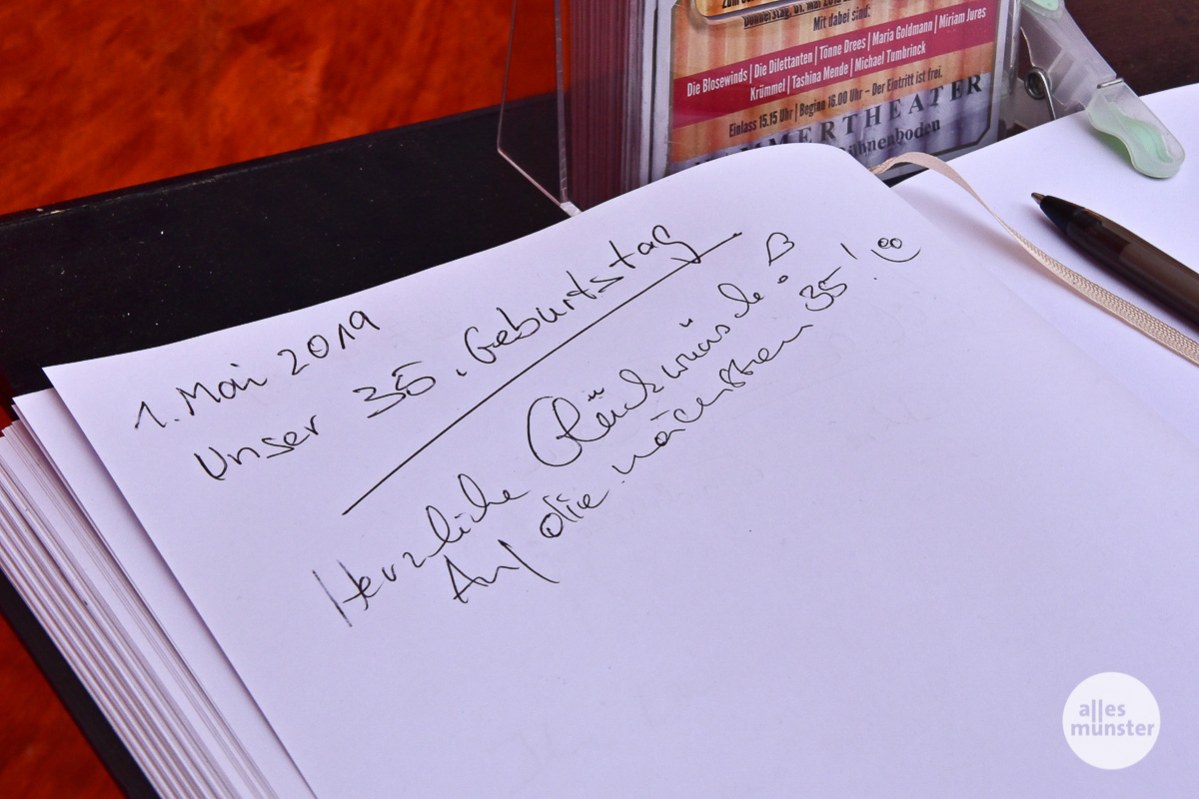 Mit dabei sind:
Die Blosewinds | Die Dilettanten | Tönne Drees | Maria Goldmann | Miriam Jures
Krömmel | Tashina Mende | Michael Tumbrinck
Einlass 15.15 Uhr | Beginn 16.00 Uhr – Der Eintritt ist frei.
MERTHEATER
ühnenboden
1. Mai 2019
Unser 35. Geburtstag
Herzliche Glückwünsche! ♡
Auf die nächsten 35! ☺
alles
münster